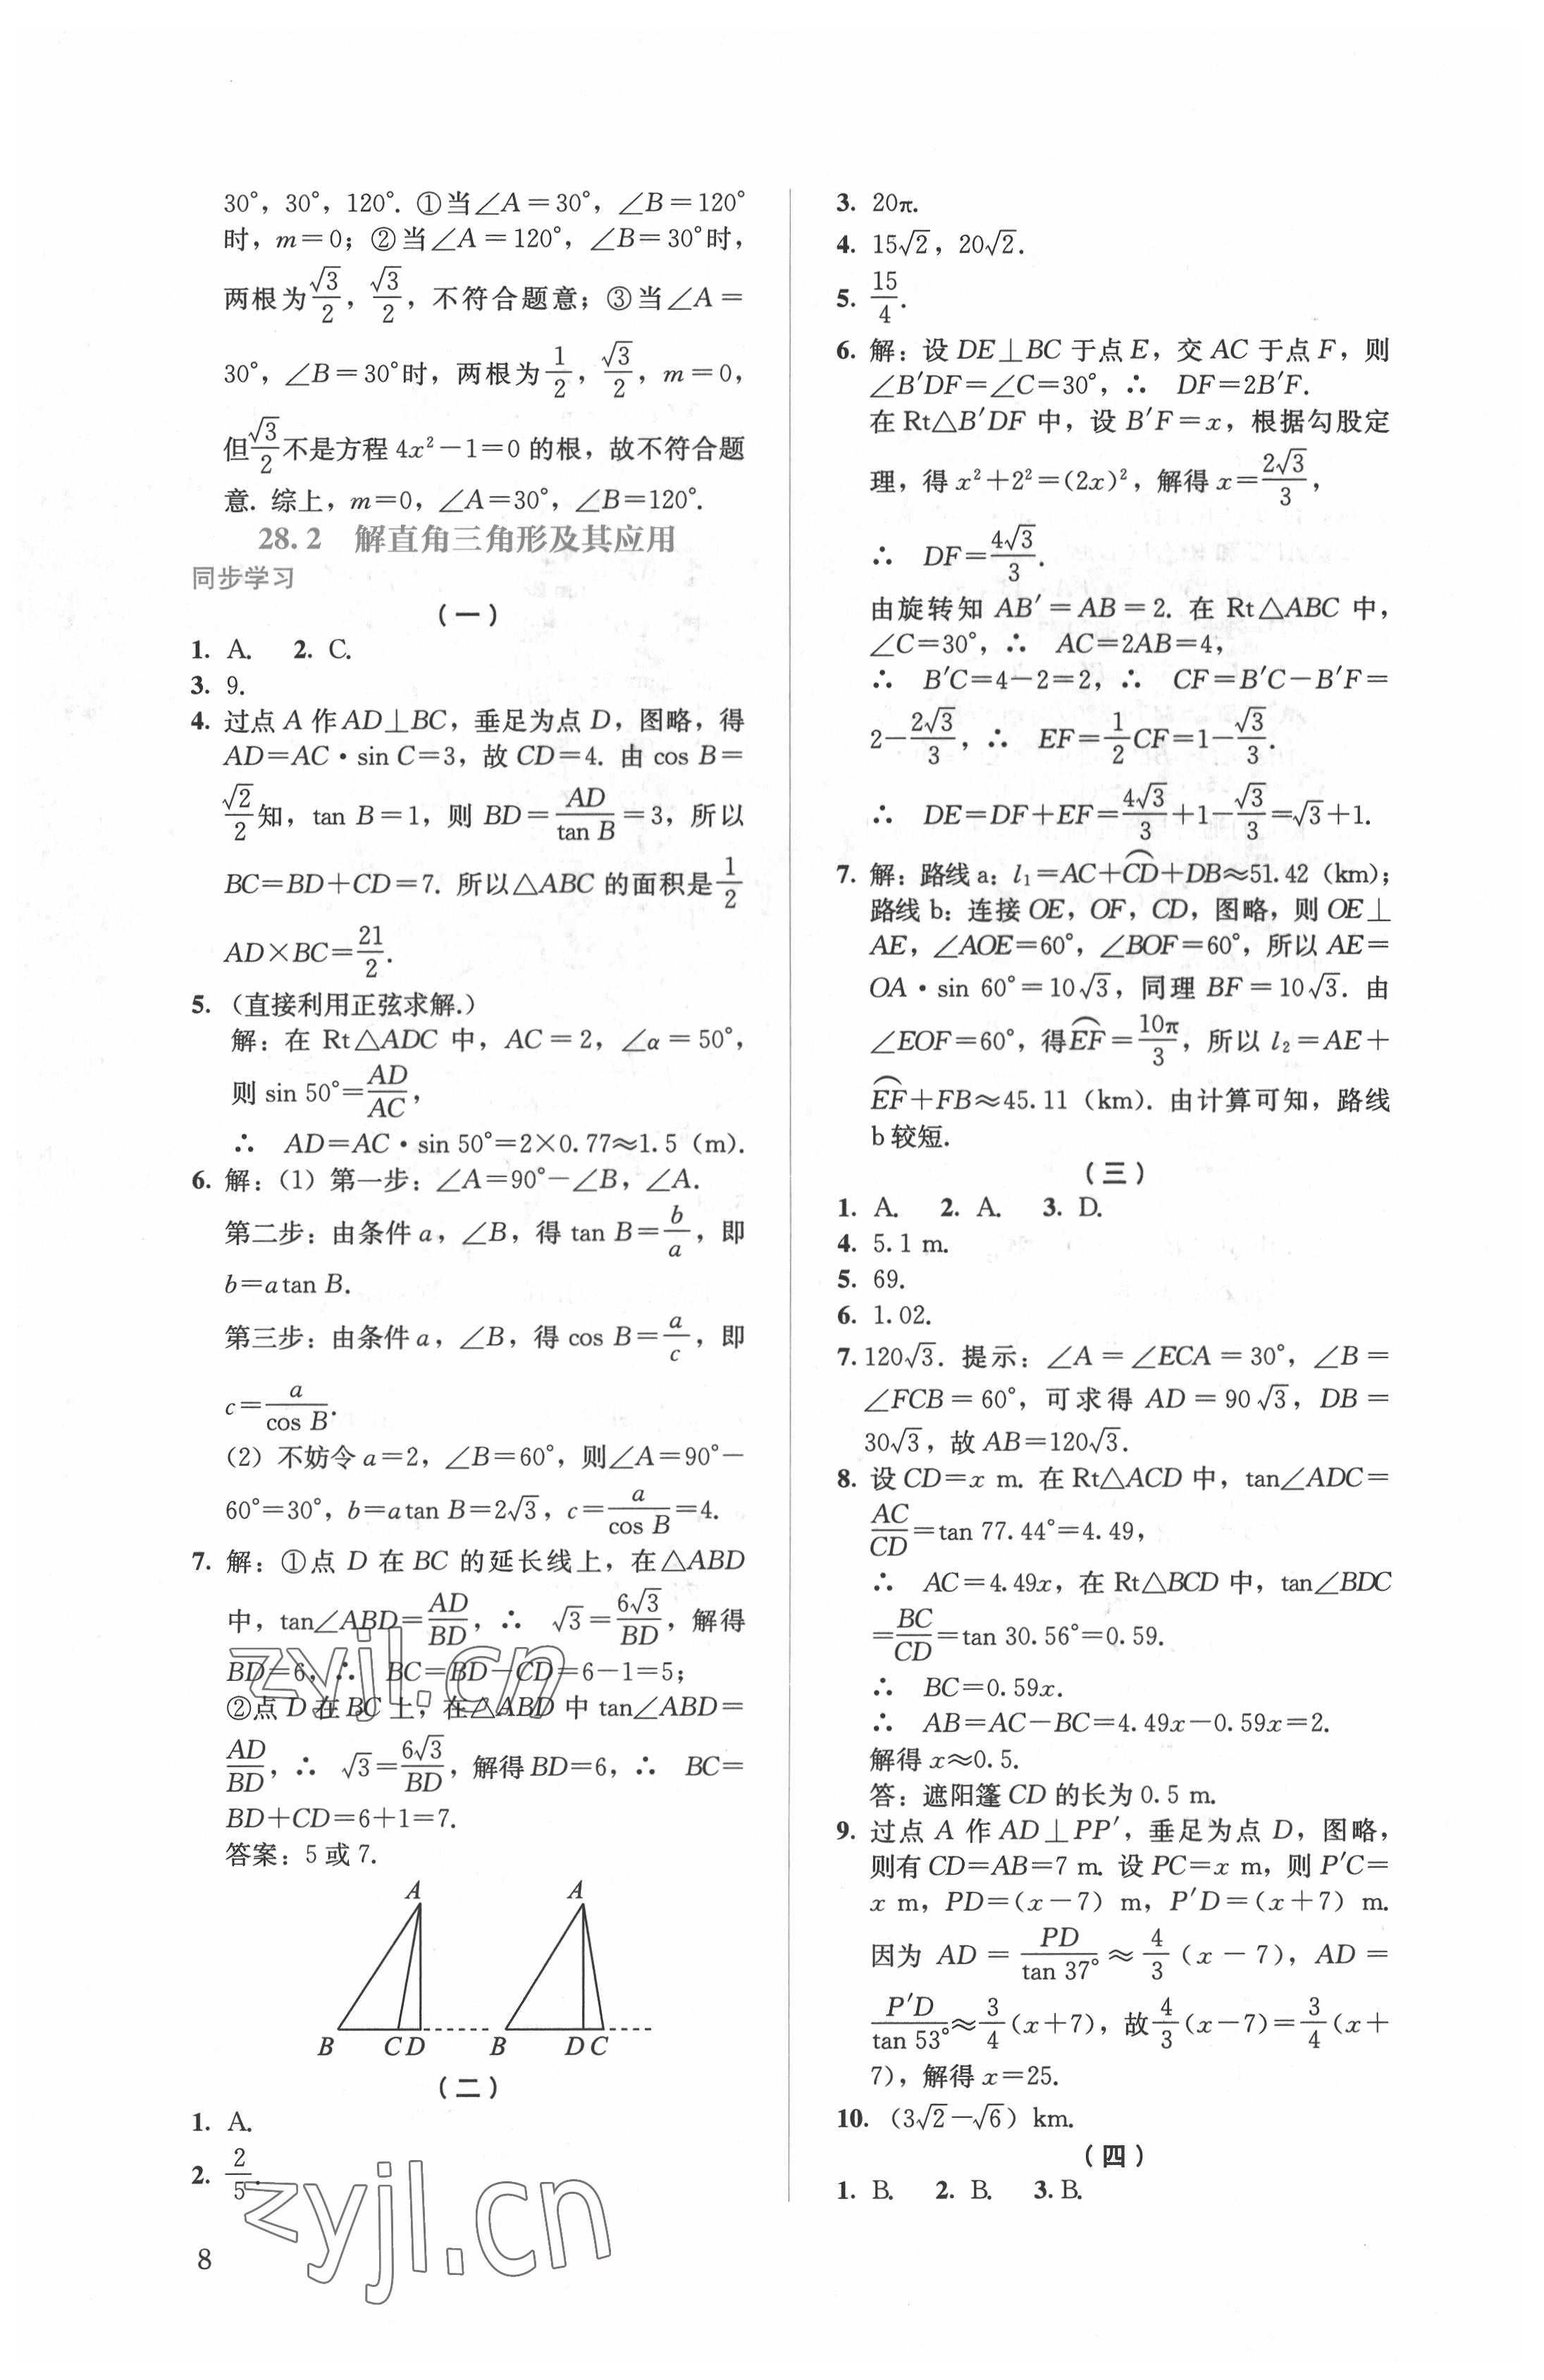 30°, 30°, 120°. ①当∠A=30°, ∠B=120°
时, m=0; ②当∠A=120°, ∠B=30°时,
两根为√3/2, √3/2, 不符合题意; ③当∠A=
30°, ∠B=30°时, 两根为1/2, √3/2, m=0,
但√3/2不是方程 4x²-1=0 的根, 故不符合题
意. 综上, m=0, ∠A=30°, ∠B=120°.
28.2 解直角三角形及其应用
同步学习
(一)
1. A. 2. C.
3. 9.
4. 过点 A 作 AD⊥BC, 垂足为点 D, 图略, 得
AD=AC·sin C=3, 故 CD=4. 由 cos B=
√2/2知, tan B=1, 则 BD=AD/tan B=3, 所以
BC=BD+CD=7. 所以△ABC 的面积是1/2
AD×BC=21/2.
5. (直接利用正弦求解.)
解: 在 Rt△ADC 中, AC=2, ∠α=50°,
则 sin 50°=AD/AC,
∴ AD=AC·sin 50°=2×0.77≈1.5 (m).
6. 解: (1) 第一步: ∠A=90°-∠B, ∠A.
第二步: 由条件 a, ∠B, 得 tan B=b/a, 即
b=atan B.
第三步: 由条件 a, ∠B, 得 cos B=a/c, 即
c=a/cos B.
(2) 不妨令 a=2, ∠B=60°, 则∠A=90°-
60°=30°, b=atan B=2√3, c=a/cos B=4.
7. 解: ①点 D 在 BC 的延长线上, 在△ABD
中, tan∠ABD=AD/BD, ∴ √3=6√3/BD, 解得
BD=6, ∴ BC=BD-CD=6-1=5;
②点 D 在 BC 上, 在△ABD 中 tan∠ABD=
AD/BD, ∴ √3=6√3/BD, 解得 BD=6, ∴ BC=
BD+CD=6+1=7.
答案: 5 或 7.
A A
B C D B D C
(二)
1. A.
2. 2/5.
zyjl.cn
zyjl.cn
8
3. 20π.
4. 15√2, 20√2.
5. 15/4.
6. 解: 设 DE⊥BC 于点 E, 交 AC 于点 F, 则
∠B′DF=∠C=30°, ∴ DF=2B′F.
在 Rt△B′DF 中, 设 B′F=x, 根据勾股定
理, 得 x²+2²=(2x)², 解得 x=2√3/3,
∴ DF=4√3/3.
由旋转知 AB′=AB=2. 在 Rt△ABC 中,
∠C=30°, ∴ AC=2AB=4,
∴ B′C=4-2=2, ∴ CF=B′C-B′F=
2-2√3/3, ∴ EF=1/2CF=1-√3/3.
∴ DE=DF+EF=4√3/3+1-√3/3=√3+1.
7. 解: 路线 a: l₁=AC+⌒CD+DB≈51.42 (km);
路线 b: 连接 OE, OF, CD, 图略, 则 OE⊥
AE, ∠AOE=60°, ∠BOF=60°, 所以 AE=
OA·sin 60°=10√3, 同理 BF=10√3. 由
∠EOF=60°, 得⌒EF=10π/3, 所以 l₂=AE+
⌒EF+FB≈45.11 (km). 由计算可知, 路线
b 较短.
(三)
1. A. 2. A. 3. D.
4. 5.1 m.
5. 69.
6. 1.02.
7. 120√3. 提示: ∠A=∠ECA=30°, ∠B=
∠FCB=60°, 可求得 AD=90√3, DB=
30√3, 故 AB=120√3.
8. 设 CD=x m. 在 Rt△ACD 中, tan∠ADC=
AC/CD=tan 77.44°=4.49,
∴ AC=4.49x, 在 Rt△BCD 中, tan∠BDC
=BC/CD=tan 30.56°=0.59.
∴ BC=0.59x.
∴ AB=AC-BC=4.49x-0.59x=2.
解得 x≈0.5.
答: 遮阳篷 CD 的长为 0.5 m.
9. 过点 A 作 AD⊥PP′, 垂足为点 D, 图略,
则有 CD=AB=7 m. 设 PC=x m, 则 P′C=
x m, PD=(x-7) m, P′D=(x+7) m.
因为 AD=PD/tan 37°≈4/3(x-7), AD=
P′D/tan 53°≈3/4(x+7), 故4/3(x-7)=3/4(x+
7), 解得 x=25.
10. (3√2-√6) km.
(四)
1. B. 2. B. 3. B.